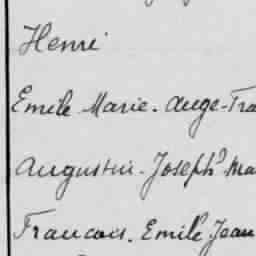 Henri
Emile Marie. Ange-Fra
Augustin. Joseph Ma
Francois. Emile Jean